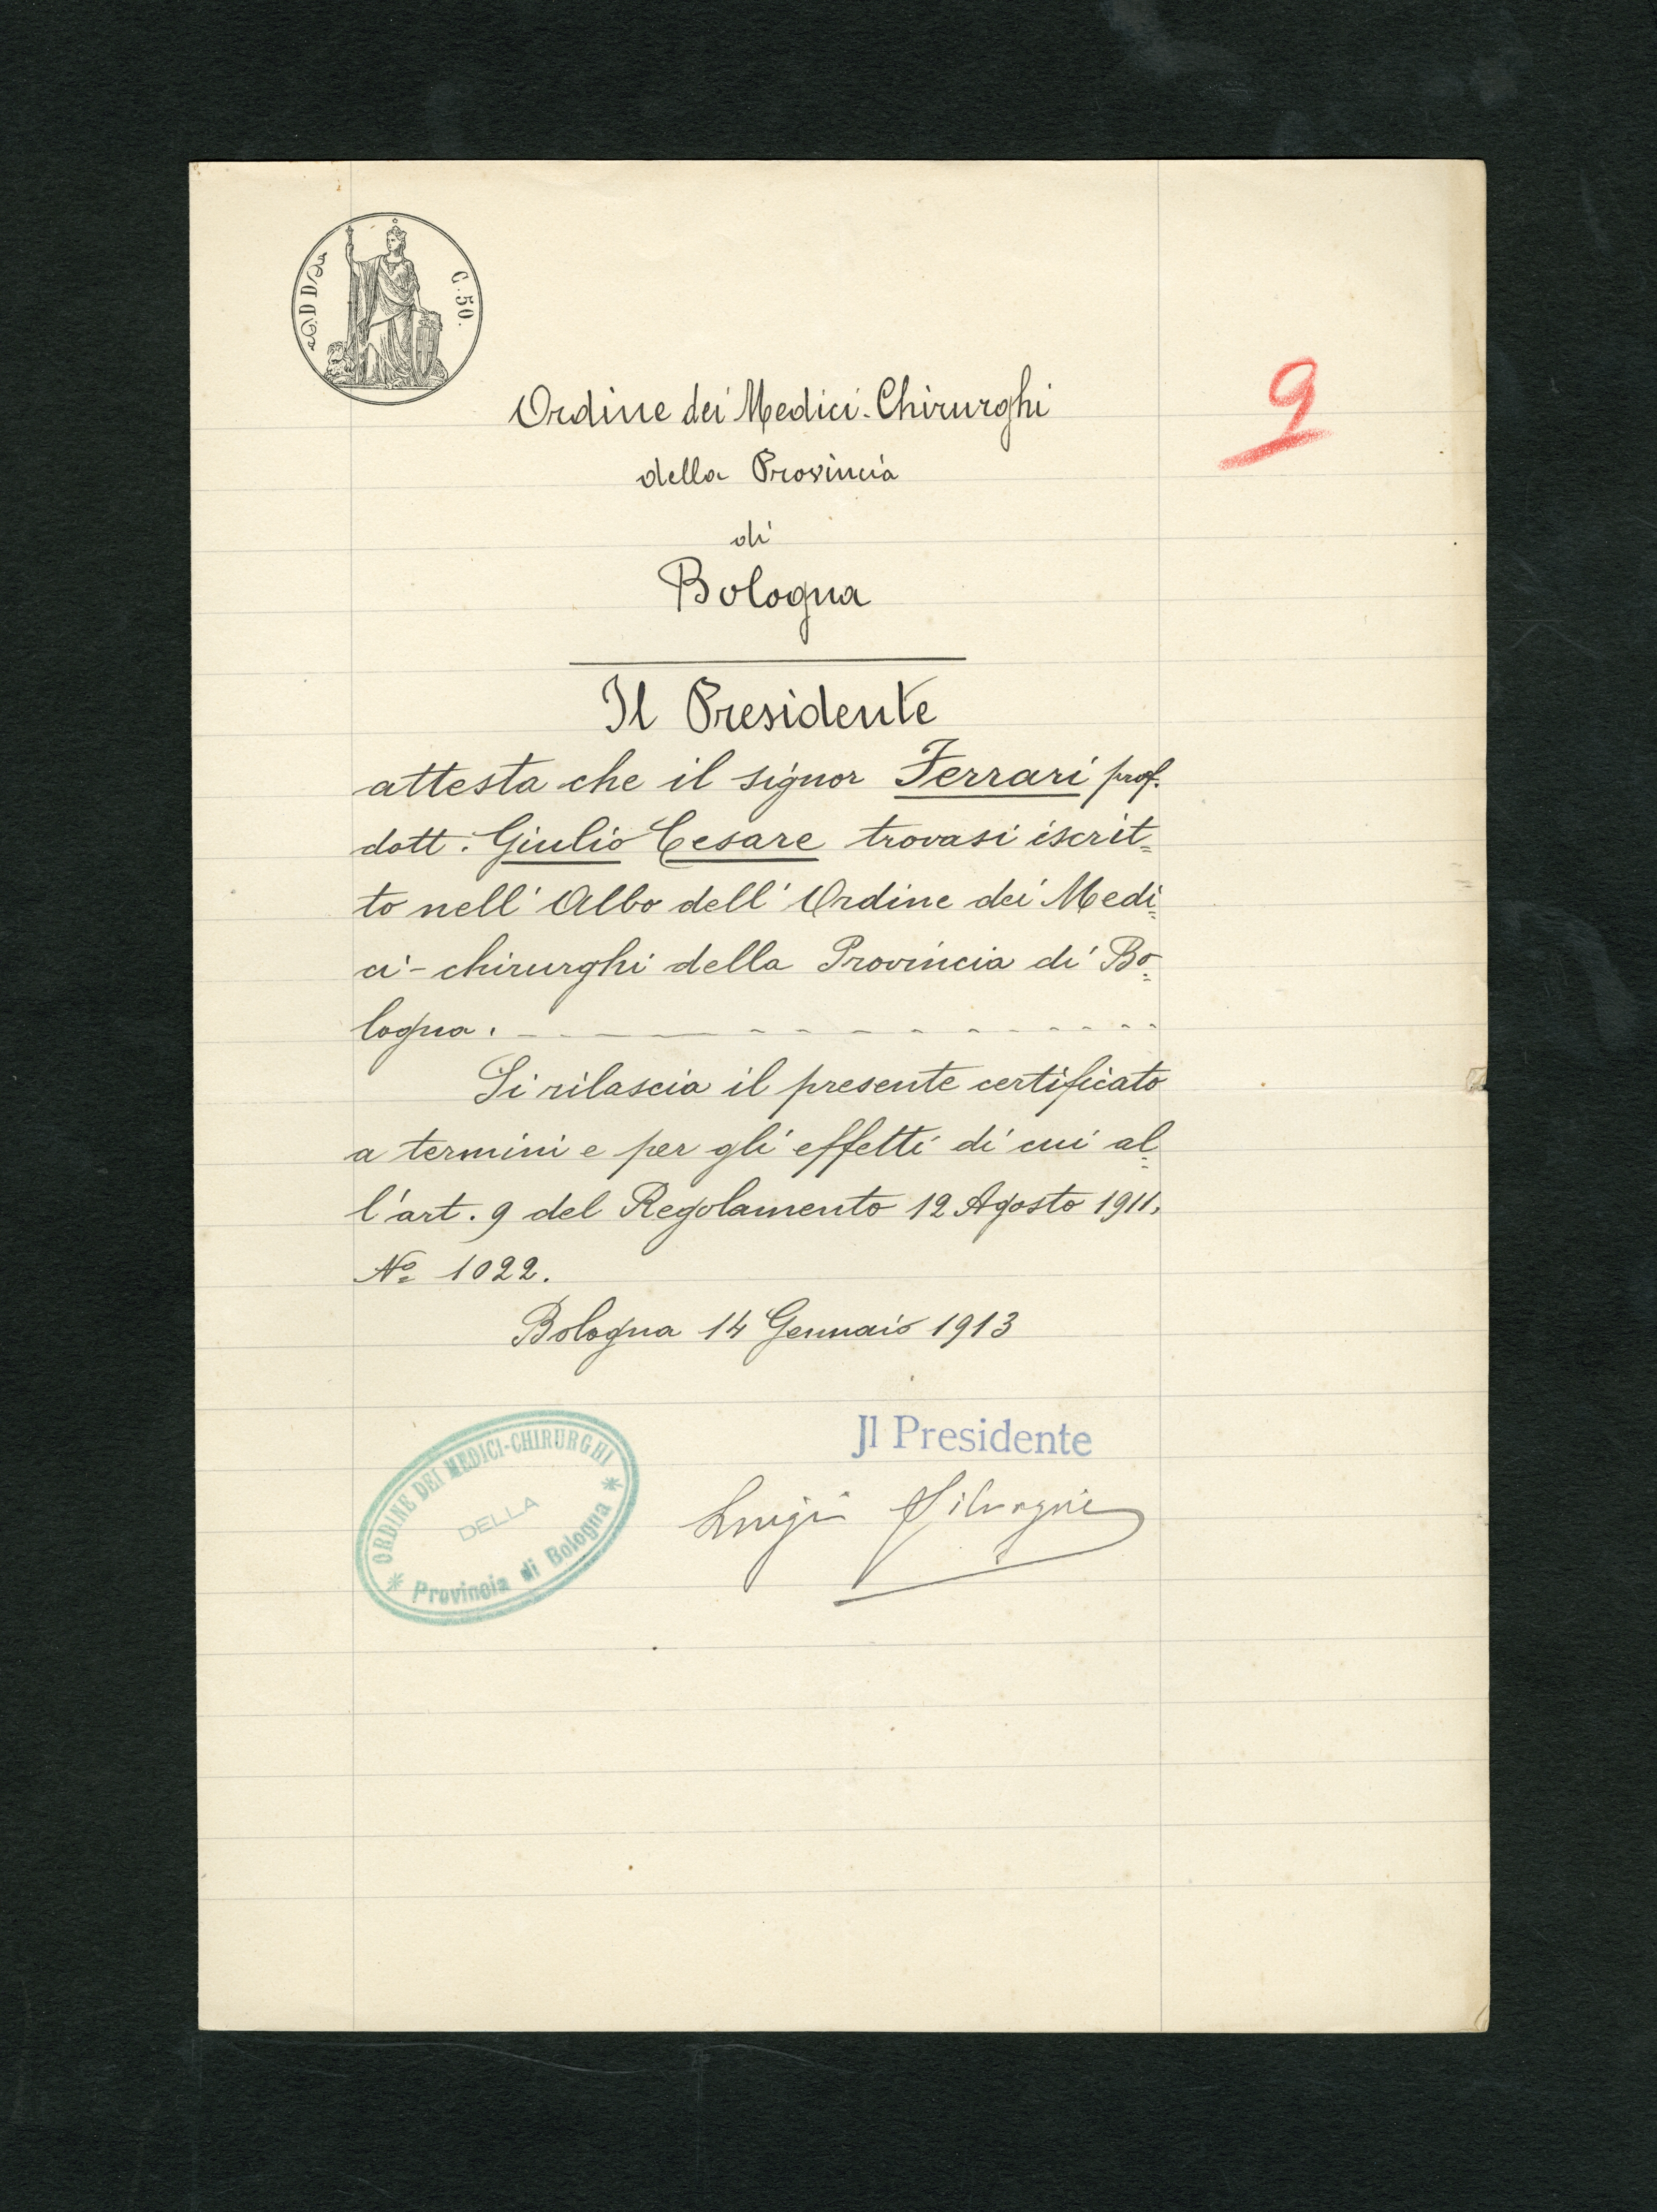 C. 50.
Ordine dei Medici-Chirurghi
della Provincia
di
Bologna
9
Il Presidente
attesta che il signor Ferrari prof.
dott: Giulio Cesare trovasi iscrit=
to nell' Albo dell' Ordine dei Medi=
ci-chirurghi della Provincia di Bo=
logna.
Si rilascia il presente certificato
a termini e per gli effetti di cui al=
l'art. 9 del Regolamento 12 Agosto 1911,
Nº 1022.
Bologna 14 Gennaio 1913
Il Presidente
Luigi Silvagni
ORDINE DEI MEDICI-CHIRURGHI
DELLA
Provincia di Bologna